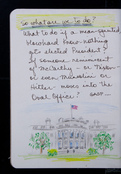 So what are we to do?
What to do if a mean-spirited
Blowhard Know-nothing
gets elected President?
If someone reminiscent
of McCarthy - or Nixon -
or even Mussolini or
Hitler - moves into the
Oval Office?